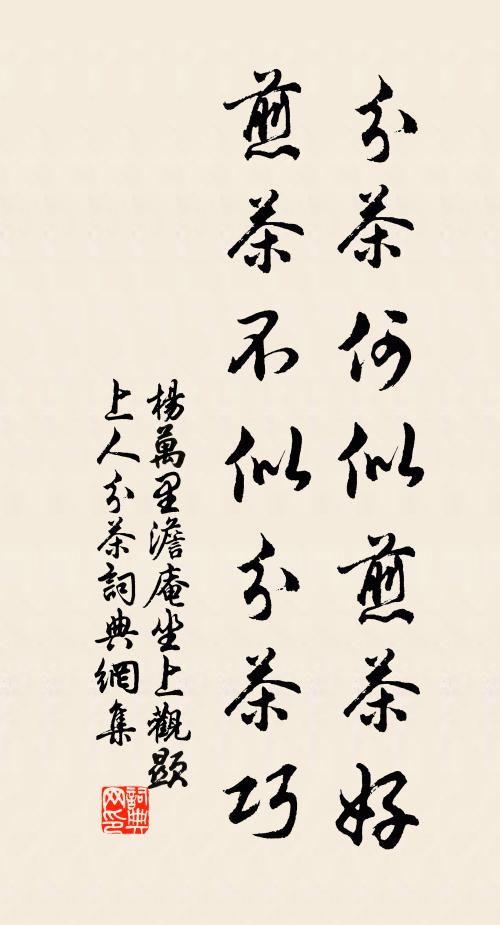 分茶何似煎茶好
煎茶不似分茶巧
楊萬里澹庵坐上觀顯
上人分茶詞典網集
詞典网印